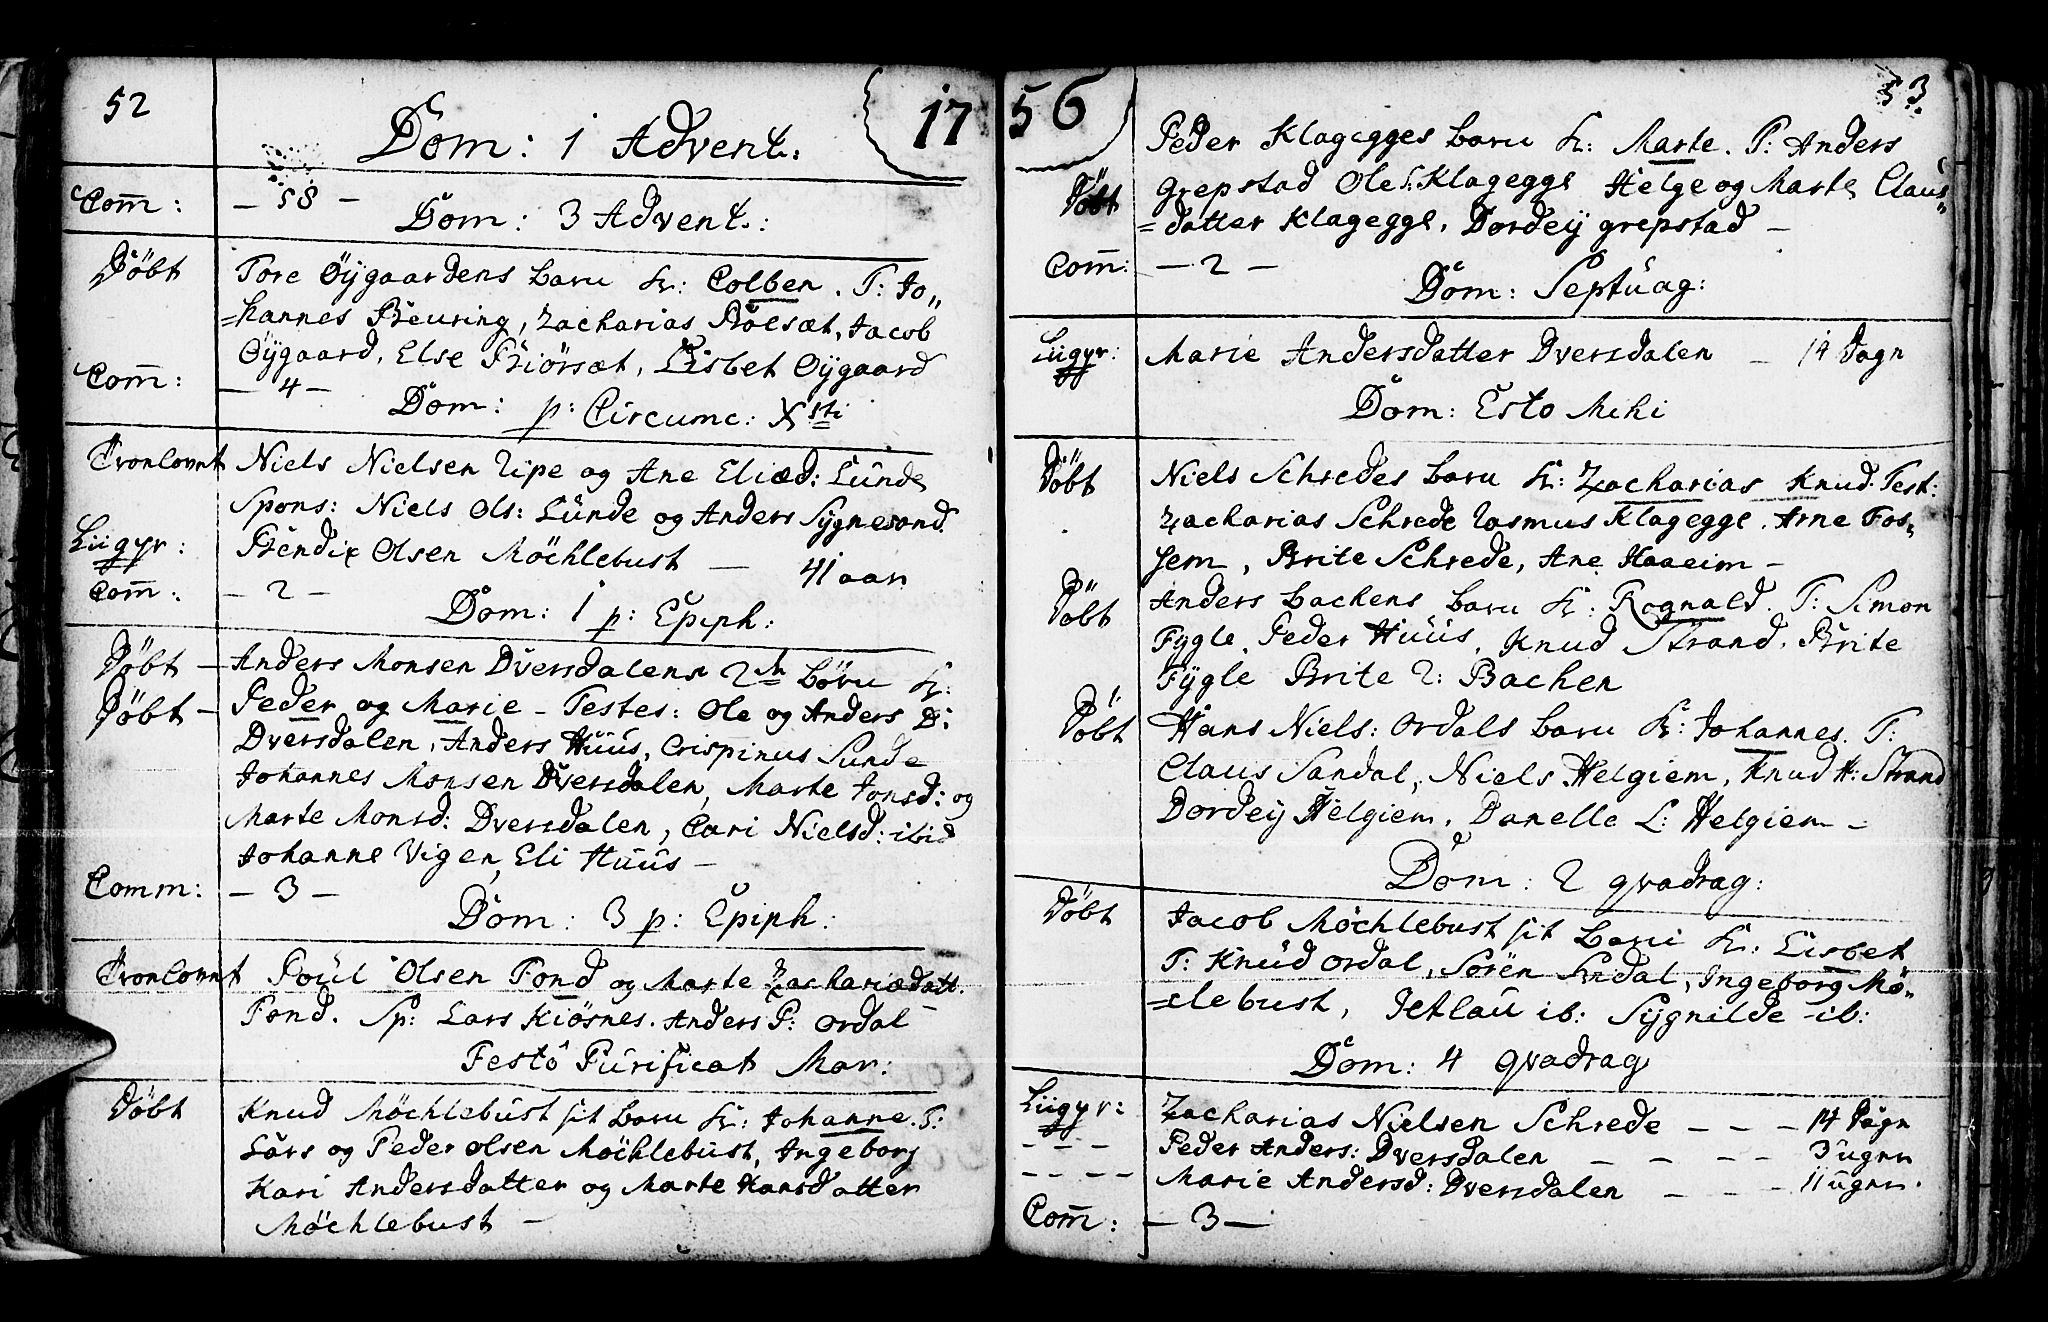 52
1756
Dom: 1 Advent:
Com̄: — 58 —
Dom: 3 Advent.:
Döbt Tore Öÿgaardens barn K: Colben. T: Jo„
=hannes Reuring, Zacharias Bölsæt, Jacob
Öÿgaard, Else Fiörsæt, Lisbet Oÿgaard
Com̄: — 4 —
Dom: p: Circumc: Xsti
Tronlovnt Niels Nielsen Ripe og Ane Eliæd: Lunde
Spons: Niels Ols: Lunde og Anders Sygnesand.
Liigpr: Bendix Olsen Möchlebust — 41 aar
Com̄: — 2 —
Dom: 1 p: Epiph:
Döbt — Anders Monsen Dversdalens 2de börn K:
Döbt — Peder og Marie — Testes: Ole og Anders D:
Dversdalen, Anders Huus, Crispinus Sunde
Johannes Monsen Dversdalen, Marte Jonsd: og
Marte Monsd: Dversdalen, Cari Nielsd: ibid
Johanne Vigen, Eli Huus —
Comm: — 3 —
Dom: 3 p: Epiph:
Tronlovnt Poul Olsen Fond og Marte Zachariædatt.
Fond. Sp: Lars Kiösnes. Anders P: Ordal
Festo Purificat Mar:
Döbt Knud Möchlebust sit barn K: Johanne. T:
Lars og Peder Olsen Möchlebust, Ingeborg
Kari Andersdatter og Marte Hansdatter
Möchlebust —
53.
Peder Klagegges barn K: Marte. T: Anders
Döbt Grepstad Ole S: Klagegge Helge og Marte Claus„
=datter Klagegge, Dordeÿ grepstad —
Com̄: — 2 —
Dom: Septuag:
Liigpr: Marie Andersdatter Dversdalen — 14 Dagr
Dom: Esto Mihi
Döbt Niels Schredes barn K: Zacharias Knud. Test:
Zacharias Schrede Rasmus Klagegge. Arne Fos„
hem, Brite Schrede, Ane Haaeim —
Döbt Anders bachens barn K: Rognald. T: Simon
Fygle, Peder Huus, Knud Strand, Brite
Fÿgle Brite R: Bachen
Döbt Hans Niels: Ordals barn K: Johannes. T:
Claus Sandal, Niels Helgiem, Knud H: Strand
Dordeÿ Helgiem, Danelle L: Helgiem —
Dom: 2 qvadrag:
Döbt Jacob Möchlebust sit barn K: Lisbet
T: Knud Ordal, Sören Sandal, Ingeborg Mö„
=clebust, Jetlau ib: Sÿgnilde ib:
Dom: 4 qvadrag
Liigpr: Zacharias Nielsen Schrede — — — 14 Dagr
— — — Peder Anders: Dversdalen — — — — 3 ugrr
— — — — Marie Andersd: Dversdalen — — — 11 ugrr.
Com̄: — 3 —